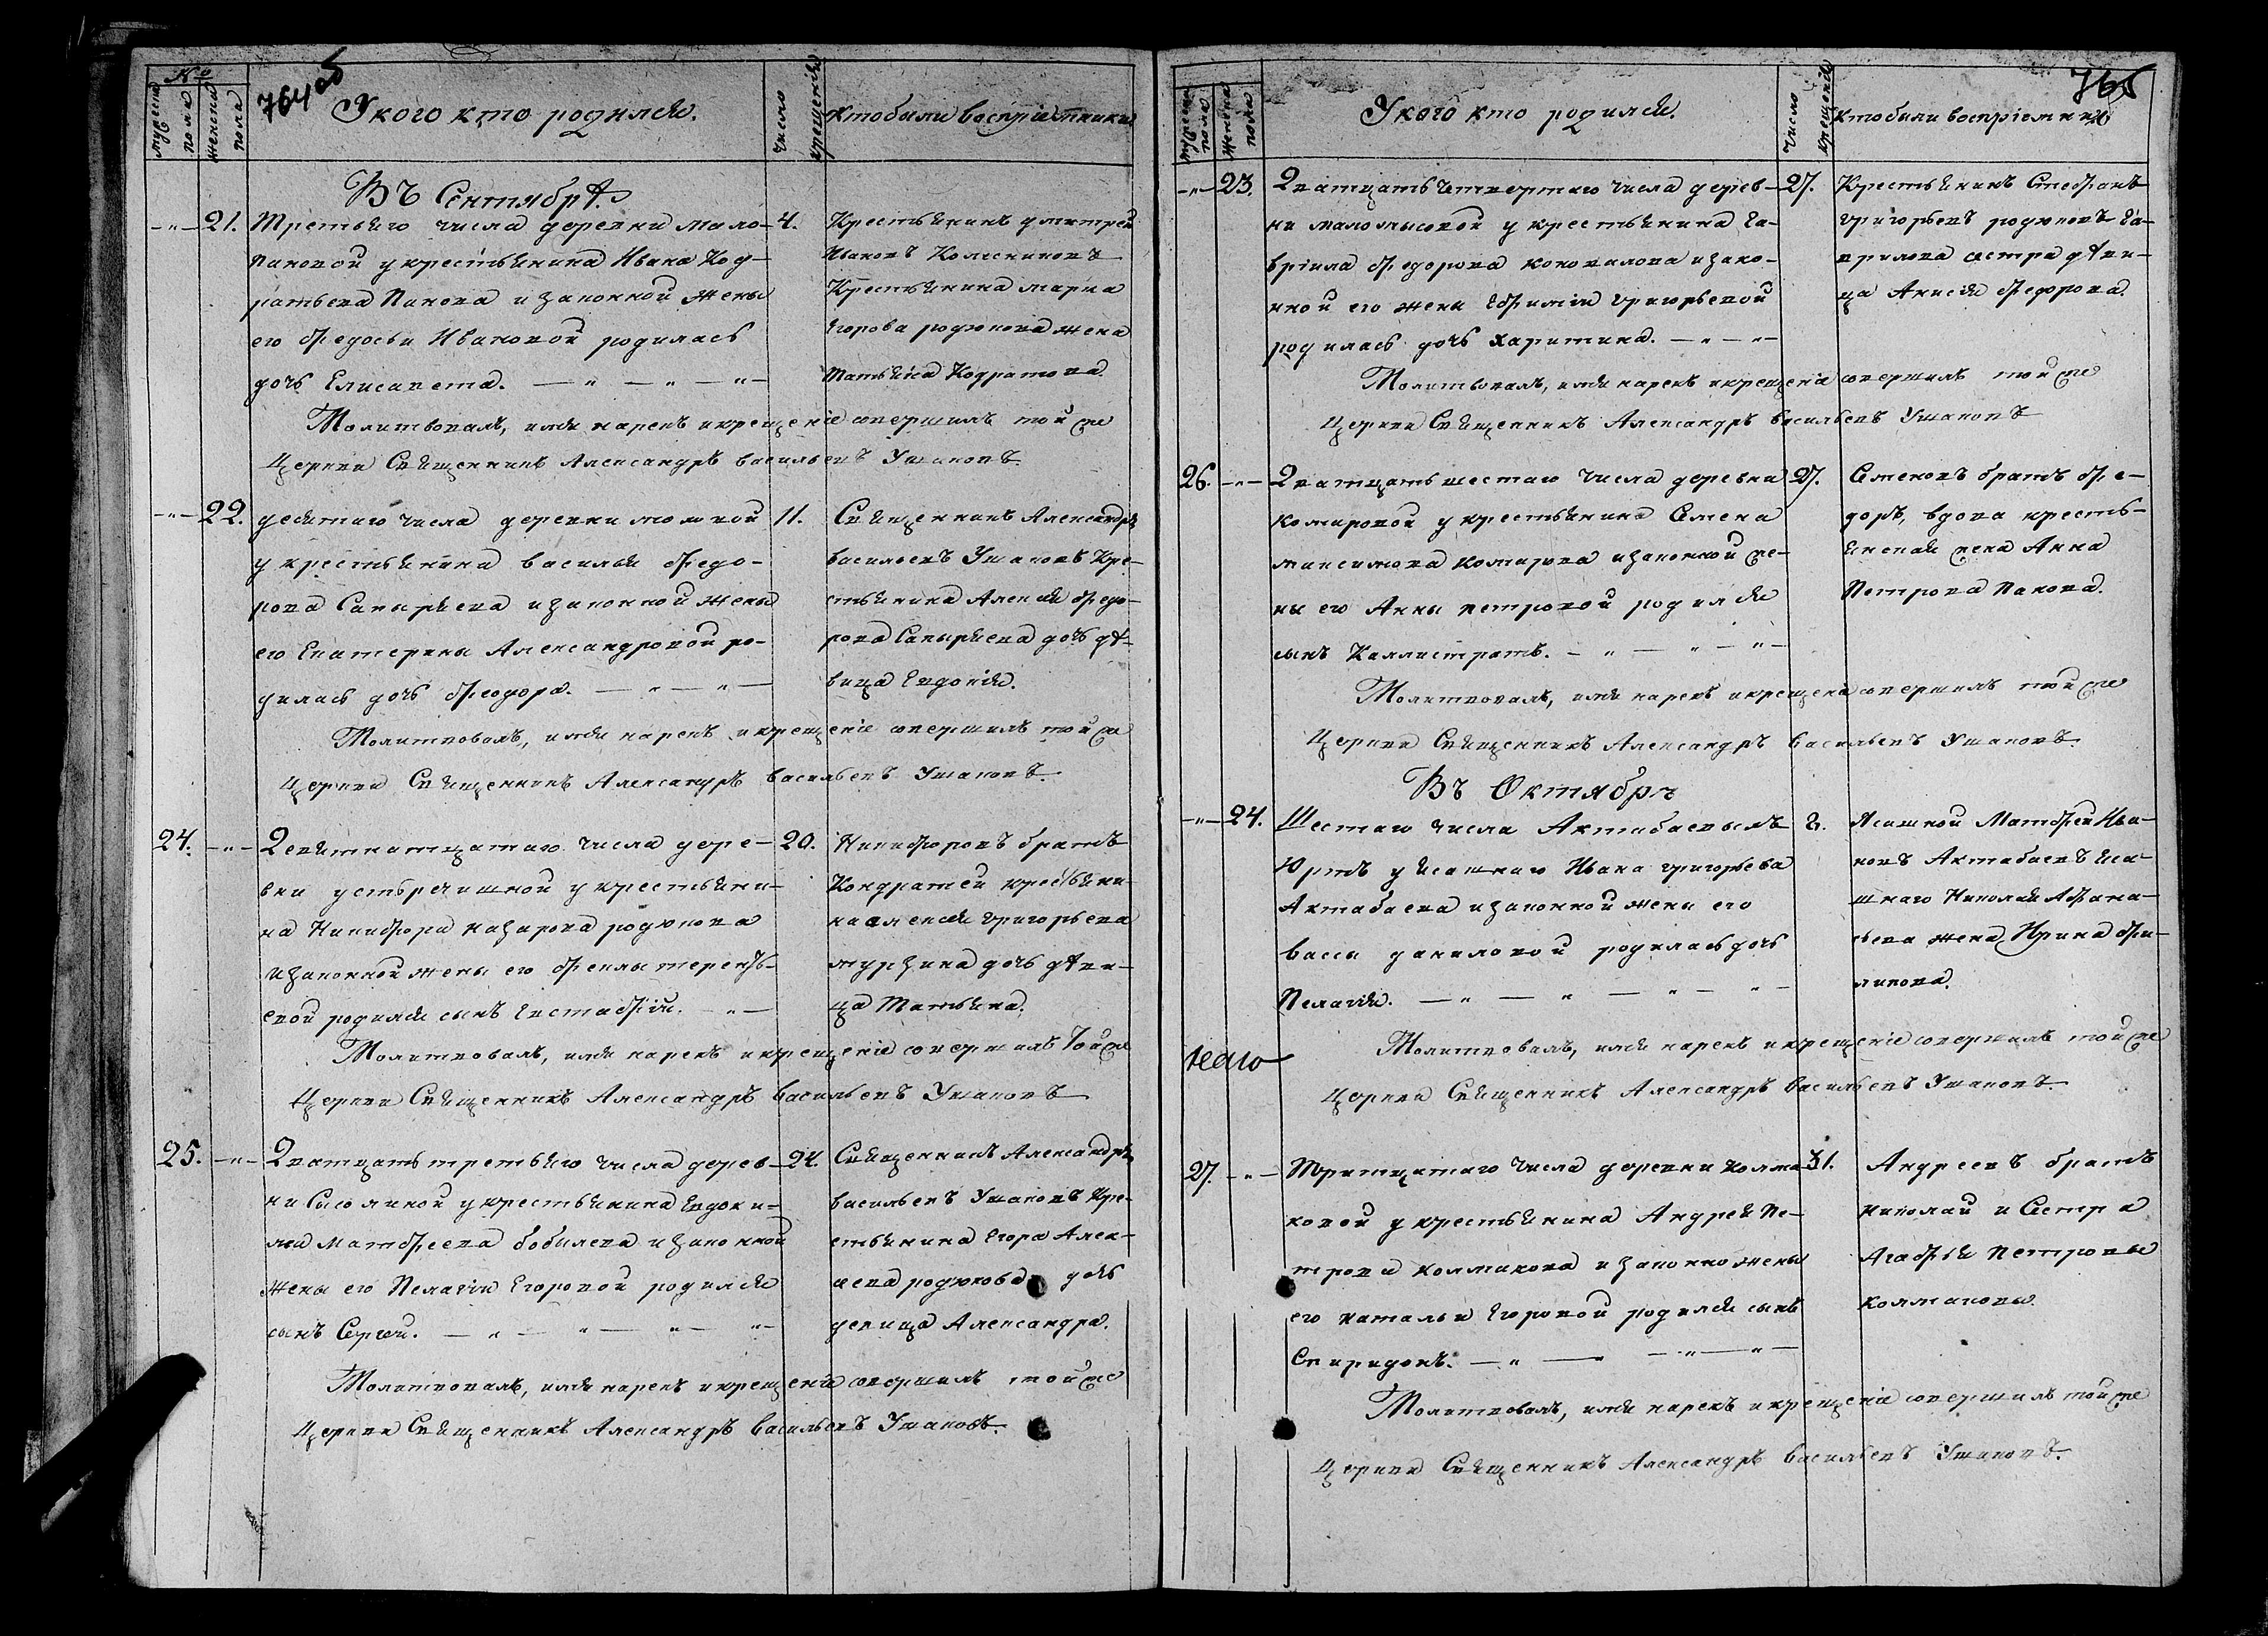 764 об
№
мужеска пола
женска пола
У кого кто родился.
число крещения
кто были восприемники
Въ Сентябрѣ
21. Третьяго числа деревни Мало- 4.
пановой у крестьянина Ивана Код-
ратьева Панова и законной жены
его Федосьи Ивановой родилась
дочь Елисавета.
Крестьянинъ Дмитрей
Ивановъ Колесниковъ
Крестьянина Марка
Егорова Родюкова жена
Татьяна Кодратова.
Молитвовалъ, имя нарекъ и крещение совершилъ той же
Церкви Священникъ Александръ Васильевъ Ушаковъ.
22. Десятаго числа деревни 11.
у крестьянина Василья Федо-
рова Сапырьева и законной жены
его Екатерины Александровой ро-
дилась дочь Феодора.
Священникъ Александръ
Васильевъ Ушаковъ Кре-
стьянина Алексея Федо-
рова Сапырьева дочь дѣ-
вица Евдокия.
Молитвовалъ, имя нарекъ и крещение совершилъ той же
Церкви Священникъ Александръ Васильевъ Ушаковъ.
24. Девятнатцатаго числа дере- 20.
вни устьречишной у крестьяни-
на Никифора Назарова Родюкова
и законной жены его Феклы Терентье-
евой родился сынъ Евстафий.
Никифоровъ братъ
Кондратей крестьяни-
на Алексея Григорьева
Мурзина дочь дѣви-
ца Татьяна.
Молитвовалъ, имя нарекъ и крещение совершилъ той же
Церкви Священникъ Александръ Васильевъ Ушаковъ
25. Дватцать третьяго числа дерев- 24.
ни Сысолиной у крестьянина Евдоки-
ма Матфеева Бобылева и законной
жены его Пелагии Егоровой родился
сынъ Сергей.
Священникъ Александръ
Васильевъ Ушаковъ Кре-
стьянина Егора Алек-
сеева Родюкова дочь
девица Александра.
Молитвовалъ, имя нарекъ и крещение совершилъ той же
Церкви Священникъ Александръ Васильевъ Ушаковъ.
765
мужеска пола
женска пола
У кого кто родился.
число крещения
кто были восприемники
23. Дватцать четвертаго числа дерев- 27.
ни Маломысовой у крестьянина Га-
врiила Федорова Коновалова и зако-
нной его жены Ефимiи Григорьевой
родилась дочь Харитина.
Крестьянинъ Стефанъ
Григорьевъ Родюковъ Га-
врилова сестра дѣви-
ца Анисья Федорова.
Молитвовалъ, имя нарекъ и крещение совершилъ той же
Церкви Священникъ Александръ Васильевъ Ушаковъ
26. Дватцать шестаго числа деревни 27.
Комаровой у крестьянина Семена
Максимова Комарова и законной же-
ны его Анны Петровой родился
сынъ Каллистратъ.
Семеновъ братъ Фе-
доръ, вдова кресть-
янская жена Анна
Петрова Панова.
Молитвовалъ, имя нарекъ и крещение совершилъ той же
Церкви Священникъ Александръ Васильевъ Ушаковъ.
Въ Октябрѣ
24. Шестаго числа Актабаевыхъ 8.
Юртъ у Ясашнаго Ивана Григорьева
Актабаева и законной жены его
Вассы Даниловой родилась дочь
Пелагия.
Ясашной Матфей Ива-
новъ Актабаевъ Яса-
шнаго Николая Афана-
сьева жена Ирина Фи-
липова.
Молитвовалъ, имя нарекъ и крещение совершилъ той же
Церкви Священникъ Александръ Васильевъ Ушаковъ.
27. Тритцатаго числа деревни Колма- 31.
ковой у крестьянина Андрея Пе-
трова Колмакова и законно жены
его Натальи Егоровой родился сынъ
Спиридонъ.
Андреевъ братъ
Николай и Сестра
Агафья Петровы
Колмаковы.
Молитвовалъ, имя нарекъ и крещение совершилъ той же
Церкви Священникъ Александръ Васильевъ Ушаковъ.